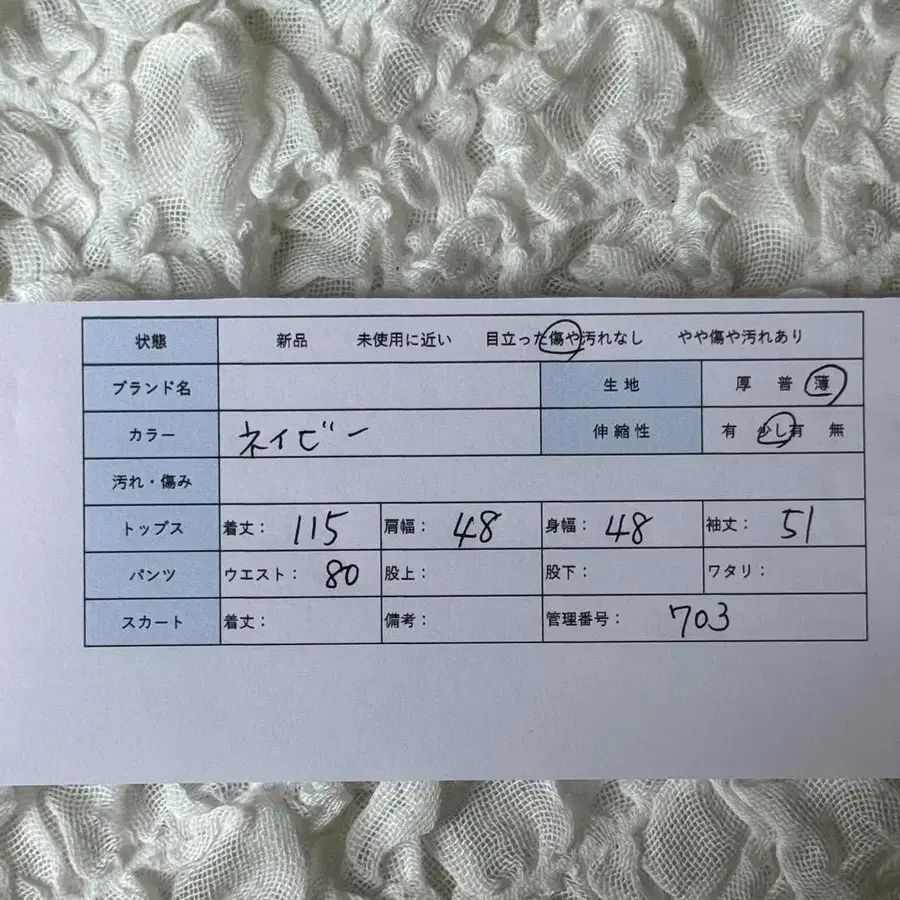 状態 新品 未使用に近い 目立った傷や汚れなし やや傷や汚れあり
ブランド名 生地 厚 普 薄
カラー ネイビー 伸縮性 有 少し有 無
汚れ・傷み
トップス 着丈： 115 肩幅： 48 身幅： 48 袖丈： 51
パンツ ウエスト： 80 股上： 股下： ワタリ：
スカート 着丈： 備考： 管理番号： 703